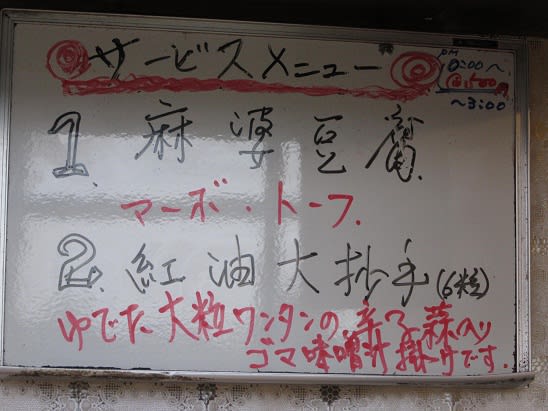 サービスメニュー
PM 0:00〜
〜3:00
1. 麻婆豆腐
マーボ・トーフ.
2. 紅油大抄手(6粒)
ゆでた大粒ワンタンの 辛え蒜入り
ゴマ味噌汁掛けです.